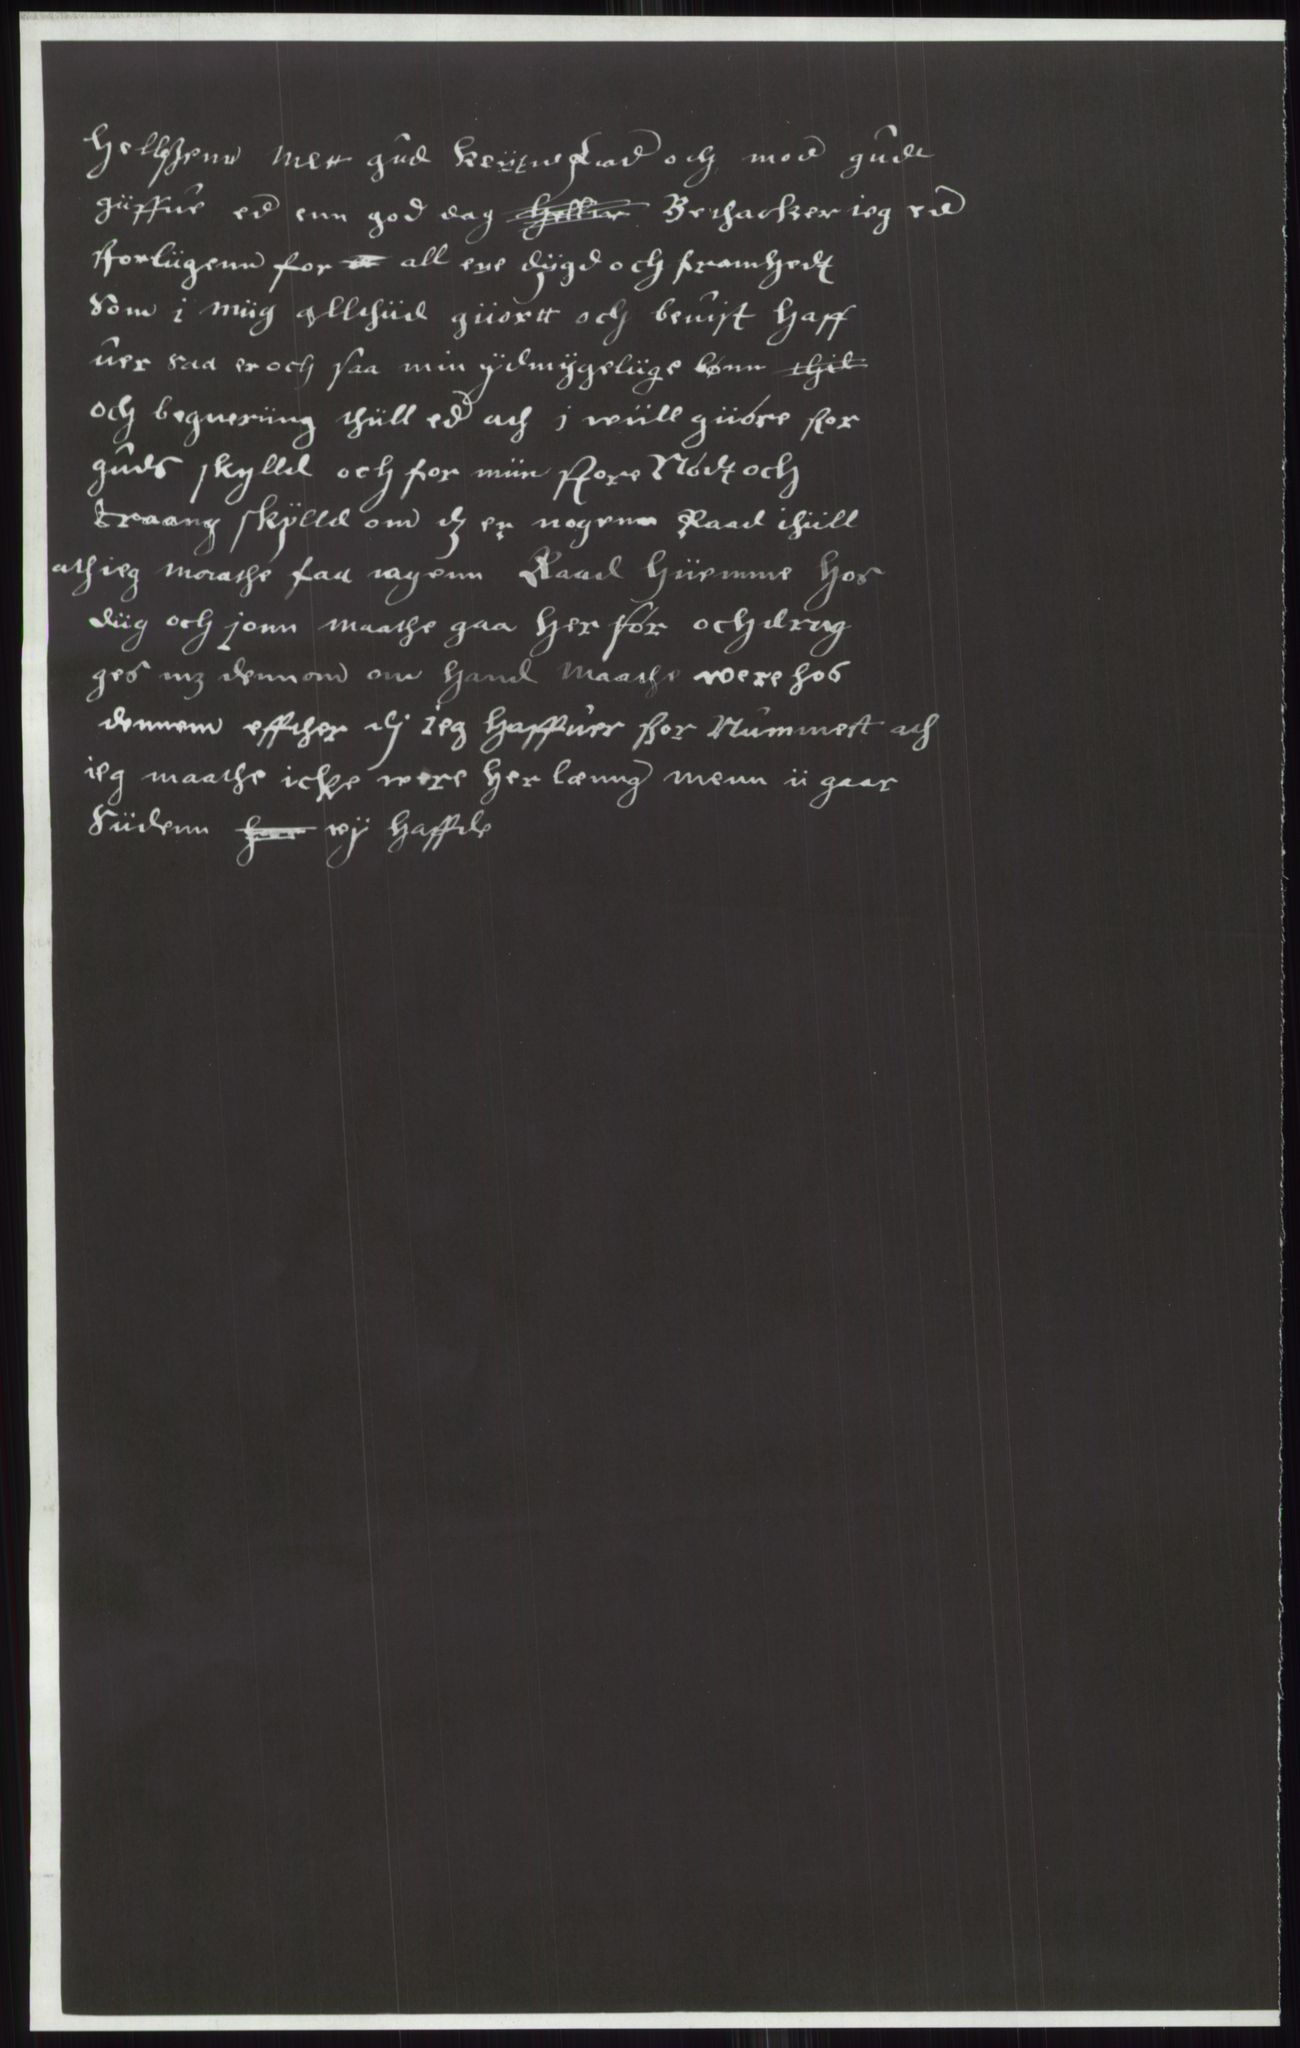 Hellszenn mett gud kerüne Raad och mod gudt
güffue ed enn god dag Bethacker ieg ed
storliigenn for all ere dÿgd och framhedt
som i miig allthiid giiortt och beuist haff
uer saa er och saa min ÿdmÿgeliige bønn
och begueriing thiill ed ath i wiill giiøre for
guds skÿlld och for miin store Nödt och
traang skÿlld om dz er nogenn Raad thiill
ath ieg maathe faa nogenn Raad hiiemme hos
diig och jonn maathe gaa her før och drag
ges mz dennom om hand maathe were hos
dennem effther dj ieg haffuer for Nummett ath
ieg maathe icke were her læng menn ii gaar
siidenn wÿ haffde